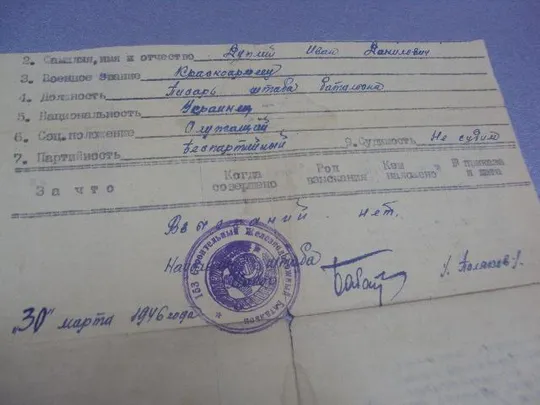 2. Фамилия, имя и отчество Дуплий Иван Данилович
3. Военное звание Красноармеец
4. Должность Писарь штаба батальона
5. Национальность Украинец
6. Соц.положение Служащий
7. Партийность Беспартийный 8. Судимость Не судим
За что Когда совершено Род взыскания Кем наложено № приказа и дата
Взысканий нет.
Начальник штаба
153 Строительный Железнодорожный батальон
"30" марта 1946 года